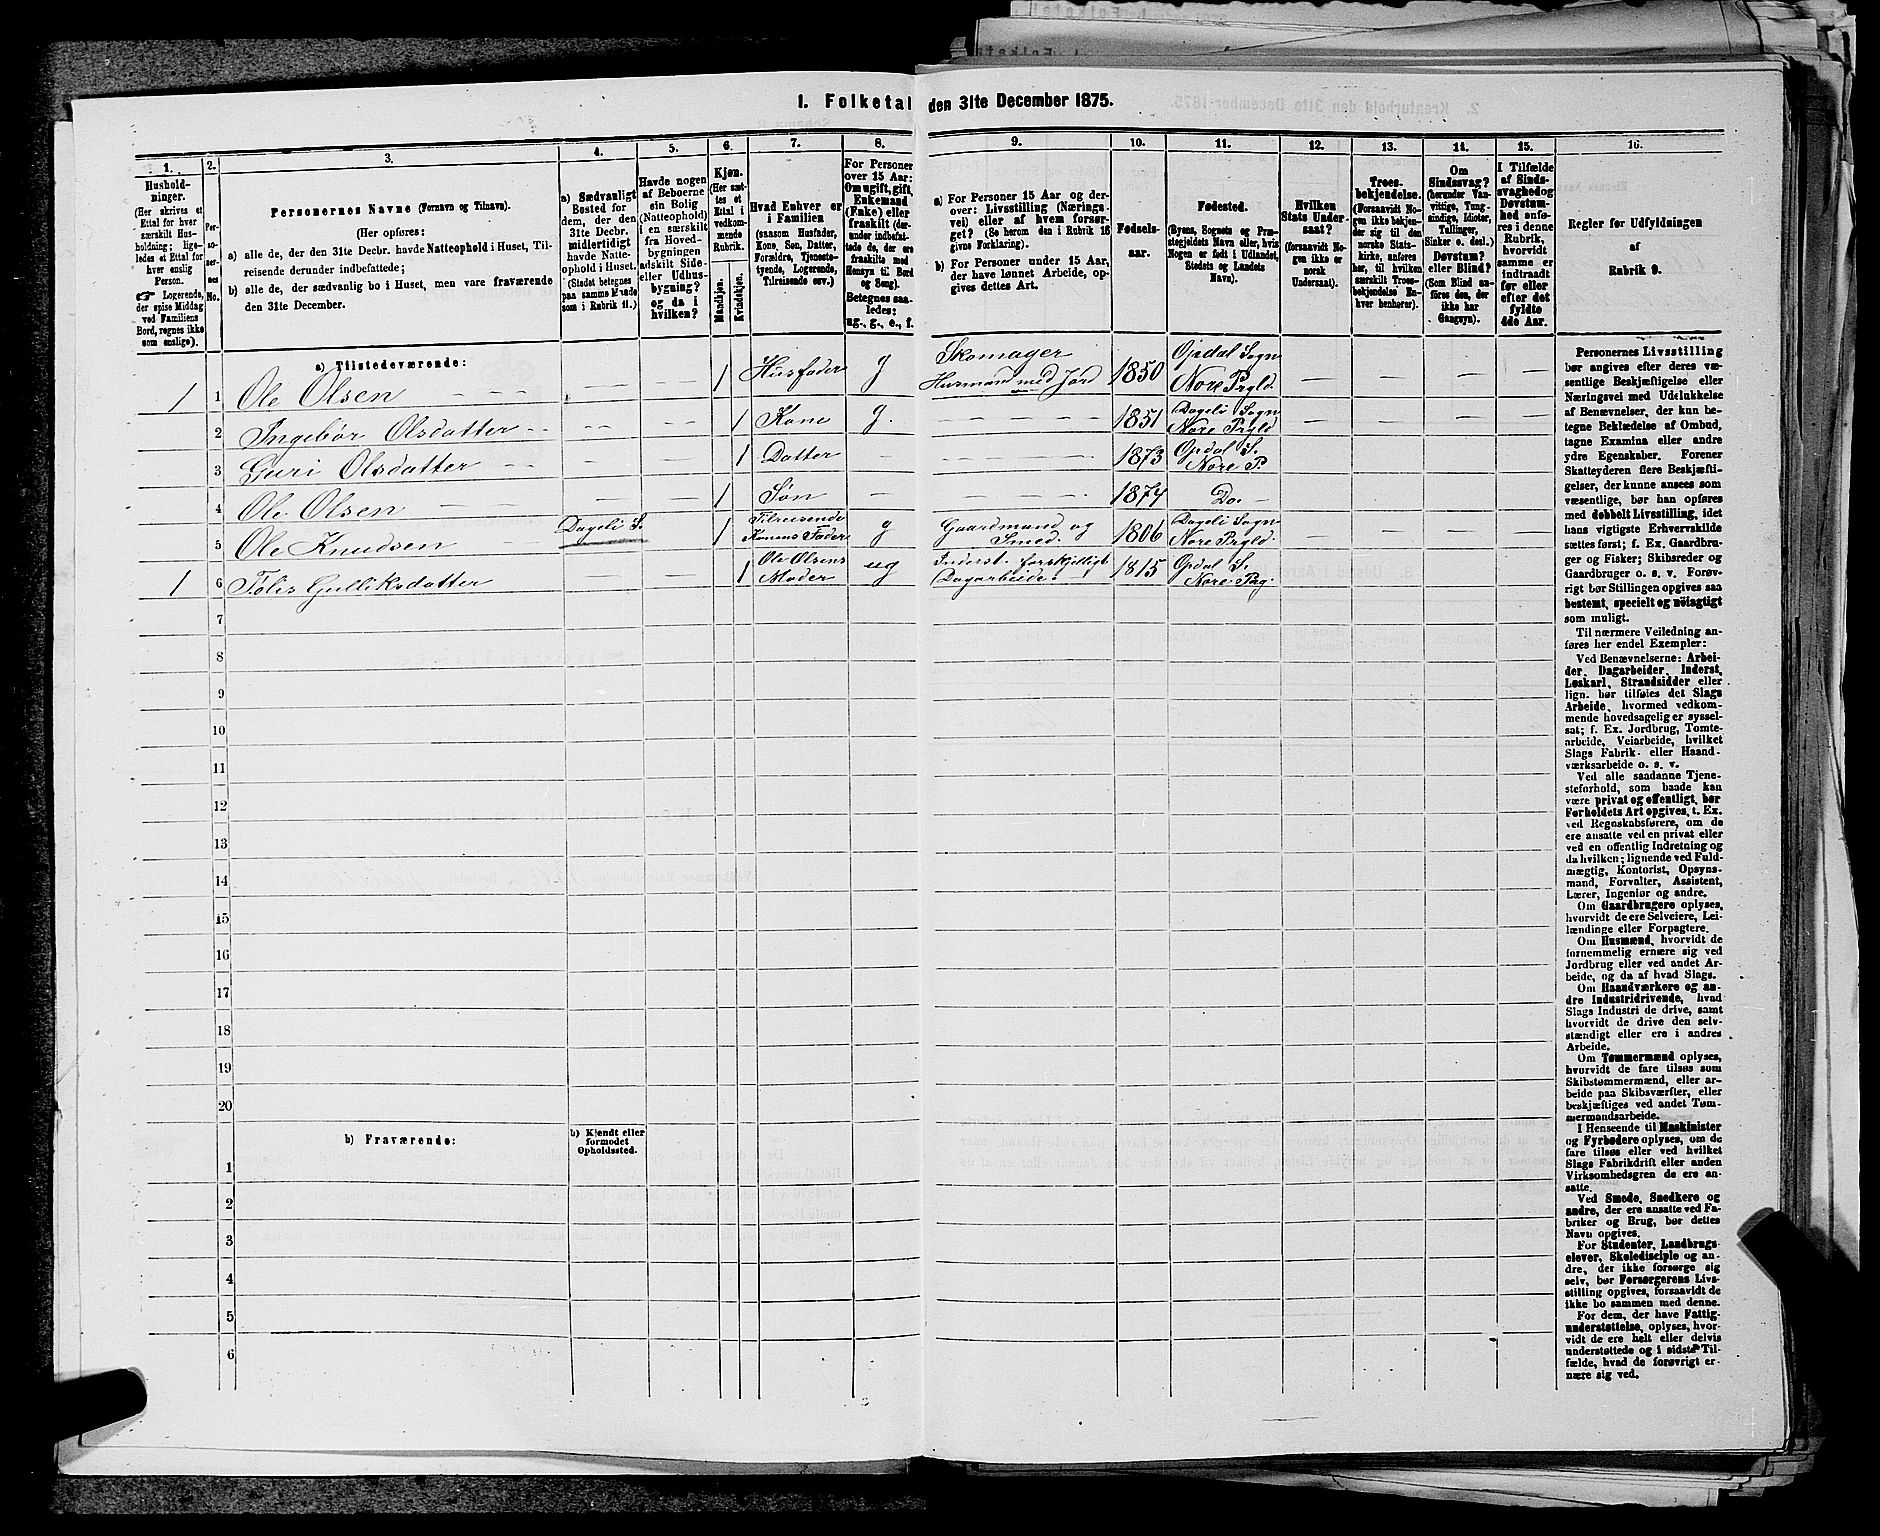 1. Folketal den 31te December 1875.
1.
Hushold-
ninger.
(Her skrives et
Ettal for hver
særskilt Hus-
holdning; lige-
ledes et Ettal for
hver enslig
Person.
☞ Logerende,
der spise Middag
ved Familiens
Bord, regnes ikke
som enslige).
2.
Per-
so-
ner-
nes
No.
3.
Personernes Navne (Fornavn og Tilnavn).
(Her opføres:
a) alle de, der den 31te Decbr. havde Natteophold i Huset, Til-
reisende derunder indbefattede;
b) alle de, der sædvanlig bo i Huset, men vare fraværende
den 31te December.
4.
a) Sædvanligt
Bosted for
dem, der den
31te Decbr.
midlertidigt
havde Natte-
ophold i Huset.
(Stedet betegnes
paa samme Maade
som i Rubrik 11.)
5.
Havde nogen
af Beboerne
ein Bolig
(Natteophold)
i en særskilt
fra Hoved-
bygningen
adskilt Side-
eller Udhus-
bygning?
og da i
hvilken?
6.
Kjøn.
(Her sæt-
tes et
Ettal i
vedkom-
mende
Rubrik.
Mandkjøn.
Kvindekjøn.
7.
Hvad Enhver er
i Familien
(saasom Husfader,
Kone, Søn, Datter,
Forældre, Tjeneste-
tyende, Logerende,
Tilreisende osv.)
8.
For Personer
over 15 Aar:
Om ugift, gift,
Enkemand
(Enke) eller
fraskilt (der-
under indbefat-
tede de, der ere
fraskilte med
Hensyn til Bord
og Seng).
Betegnes saa-
ledes:
ug., g., e., f.
9.
a) For Personer 15 Aar og der-
over: Livsstilling (Nærings
vei) eller af hvem forsør-
get? (Se herom den i Rubrik 16
givne Forklaring).
b) For Personer under 15 Aar,
der have lønnet Arbeide, op-
gives dettes Art.
10.
Fødsels-
aar.
11.
Fødested.
(Byens, Sognets og Præ-
stegjeldets Navn eller, hvis
Nogen er født i Udlandet,
Stedets og Landets
Navn).
12.
Hvilken
Stats Under-
saat?
(forsaavidt No-
gen ikke er
norsk
Undersaat).
13.
Troes-
bekjendelse.
(Forsaavidt No-
gen ikke bekjen-
der sig til den
norske Stats-
kirke, anføres
her, til hvilken
særskilt Troes-
bekjendelse En-
hver henhører).
14.
Om
Sindssvag?
(herunder Van-
vittige, Tung-
sindige, Idioter,
Tullinger,
Sinker o. desl.)
Døvstum?
eller Blind?
(Som Blind an-
føres den, der
ikke har
Gangsyn).
15.
I Tilfælde
af Sinds-
svaghed og
Døvstum-
hed anfø-
res i denne
Rubrik,
hvorvidt
samme er
indtraadt
før eller
efter det
fyldte
4de Aar.
16.
Regler før Udfyldningen
af
Rubrik 9.
a) Tilstedeværende:
1 1 Ole Olsen — — — — — — — 1 Husfader g Skomager Husmand med Jord 1850 Opdal Sogn Nore Prgld. — — — —
2 Ingebør Olsdatter — — — — — 1 Kone g. — — — — 1851 Dageli Sogn Nore Prgld — — — —
3 Guri Olsdatter — — — — — — 1 Datter — — — — — 1873 Opdal S. Nore P. — — — —
4 Ole Olsen — — — — — 1 Søn — — — — — 1874 Do. — — — — —
5 Ole Knudsen — Dageli S. — — 1 Tilreisende Konens Fader g Gaardmand og Smed. 1806 Dageli Sogn Nore Prgld. — — — —
1 6 Tolis Gulliksdatter — — — — 1 Ole Olsens Moder ug Inderst. forskjelligt Dagarbeide. 1815 Opdal S. Nore Prg. — — — —
7
8
9
10
11
12
13
14
15
16
17
18
19
20
b) Fraværende:
b) Kjendt eller
formodet
Opholdssted.
1
2
3
4
5
6
Personernes Livsstilling
bør angives efter deres væ-
sentlige Beskjæftigelse eller
Næringsvei med Udelukkelse
af Benævnelser, der kun be-
tegne Beklædelse af Ombud,
tagne Examina eller andre
ydre Egenskaber. Forener
Skatteyderen flere Beskjæfti-
gelser, der kunne ansees som
væsentlige, bør han opføres
med dobbelt Livsstilling, idet
hans vigtigste Erhvervskilde
sættes først; f. Ex. Gaardbru-
ger og Fisker; Skibsreder og
Gaardbruger o. s. v. Forøv-
rigt bør Stillingen opgives saa
bestemt, specielt og nöiagtigt
som muligt.
Til nærmere Veiledning an-
føres her endel Exempler:
Ved Benævnelserne: Arbei-
der, Dagarbeider, Inderst,
Løskarl, Strandsidder eller
lign. bør tilføies det Slags
Arbeide, hvormed vedkom-
mende hovedsagelig er syssel-
sat; f. Ex. Jordbrug, Tomte-
arbeide, Veiarbeide, hvilket
Slags Fabrik- eller Haand-
værksarbeide o. s. v.
Ved alle saadanne Tjene-
steforhold, som baade kan
være privat og offentligt, bør
Forholdets Art opgives, t. Ex.
ved Regnskabsførere, om de
ere ansatte ved en privat eller
ved en offentlig Indretning og
da hvilken; lignende ved Fuld-
mægtig, Kontorist, Opsyns-
mand, Forvalter, Assistent,
Lærer, Ingeniør og andre.
Om Gaardbrugere oplyses,
hvorvidt de ere Selveiere, Lei-
lændinge eller Forpagtere.
Om Husmænd, hvorvidt de
fornemmelig ernære sig ved
Jordbrug eller ved andet Ar-
beide, og da af hvad Slags.
Om Haandværkere og an-
dre Industridrivende, hvad
Slags Industri de drive, samt
hvorvidt de drive den selv-
stændigt eller ere i andres
Arbeide.
Om Tømmermænd oplyses,
hvorvidt de fare tilsøs som
Skibstømmermænd, eller ar-
beide paa Skibsværfter, eller
beskjæftiges ved andet Tøm-
mermandsarbeide.
I Henseende til Maskinister
og Fyrbødere oplyses, om de
fare tilsøs eller ved hvilket
Slags Fabrikdrift eller anden
Virksomhedsgren de ere an-
satte.
Ved Smede, Snedkere og
andre, der ere ansatte ved Fa-
briker og Brug, bør dettes
Navn opgives.
For Studenter, Landbrugs-
elever, Skoledisciple og an-
dre, der ikke forsørge sig
selv, bør Forsørgerens Livs-
stilling opgives, forsaavidt de
ikke bo sammen med denne.
For dem, der have Fattig-
understøttelse, oplyses, hvor-
vidt de ere helt eller delvis
understøttede og i sidste Til-
fælde, hvad de forøvrigt er-
nære sig ved.